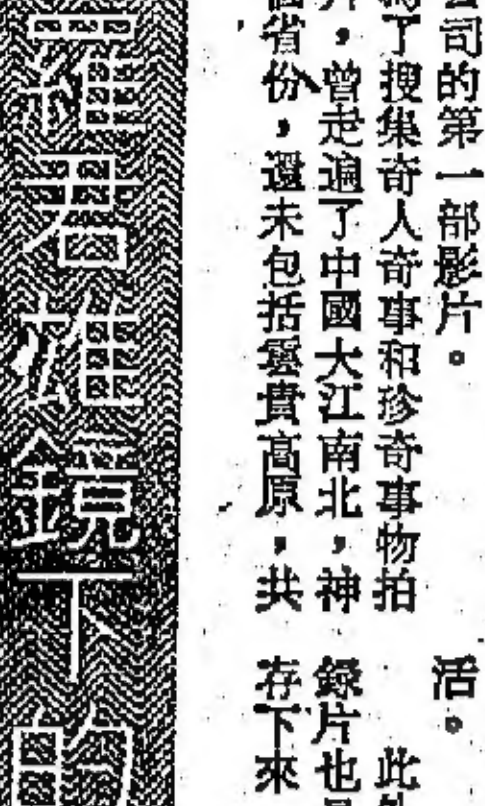 司的第一部影片。
了搜集奇人奇事和珍奇事物拍
，曾走遍了中國大江南北，神
省份，還未包括雲貴高原，共
活。
此
錄片也
存下來
羅君雄鏡下的